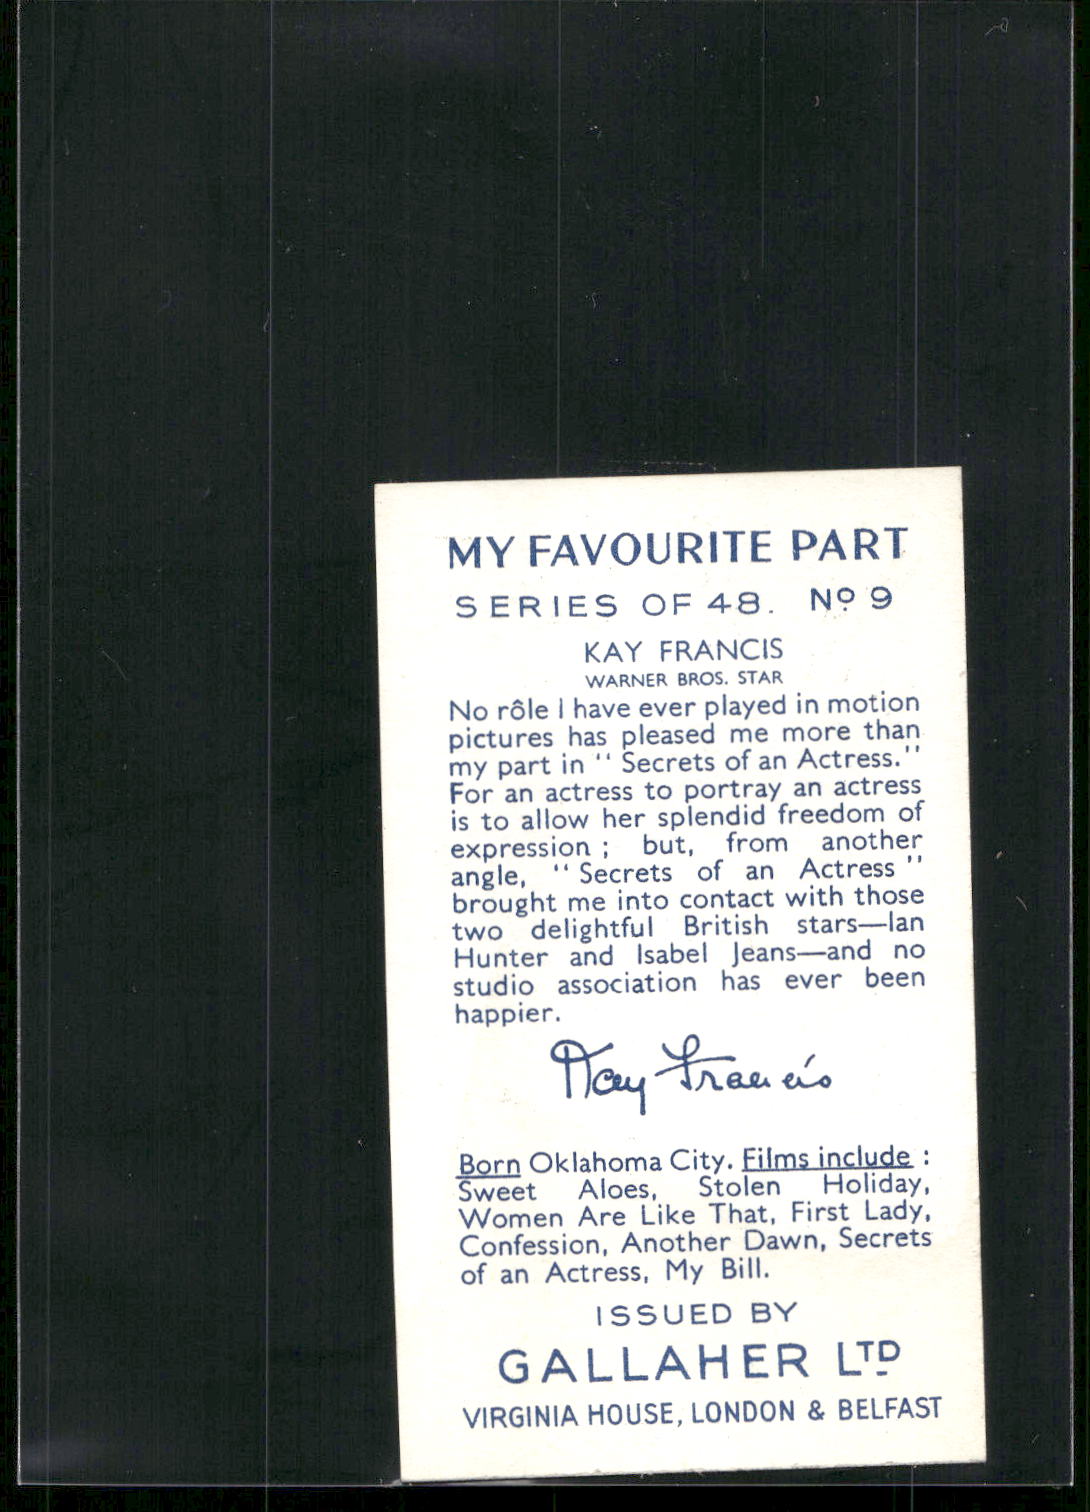 MY FAVOURITE PART
SERIES OF 48. Nº 9
KAY FRANCIS
WARNER BROS. STAR
No rôle I have ever played in motion
pictures has pleased me more than
my part in “ Secrets of an Actress.”
For an actress to portray an actress
is to allow her splendid freedom of
expression ; but, from another
angle, “ Secrets of an Actress ”
brought me into contact with those
two delightful British stars—Ian
Hunter and Isabel Jeans—and no
studio association has ever been
happier.
Kay Francis
Born Oklahoma City. Films include :
Sweet Aloes, Stolen Holiday,
Women Are Like That, First Lady,
Confession, Another Dawn, Secrets
of an Actress, My Bill.
ISSUED BY
GALLAHER LTD
VIRGINIA HOUSE, LONDON & BELFAST